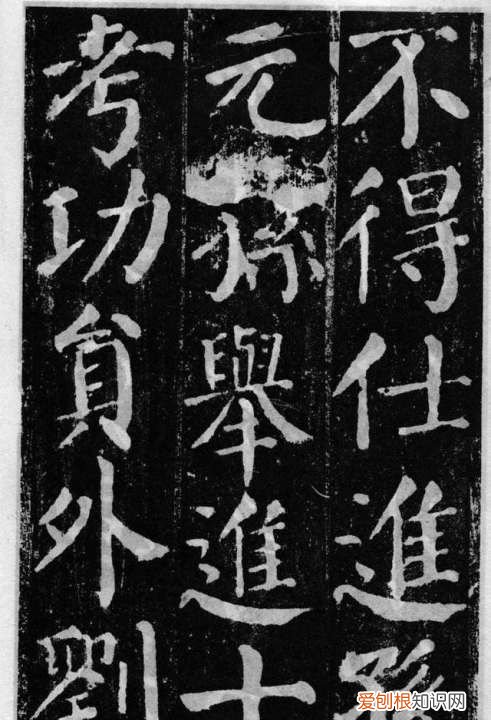 不得仕進孫
元孫舉進士
考功貟外劉
爱刨根知识网